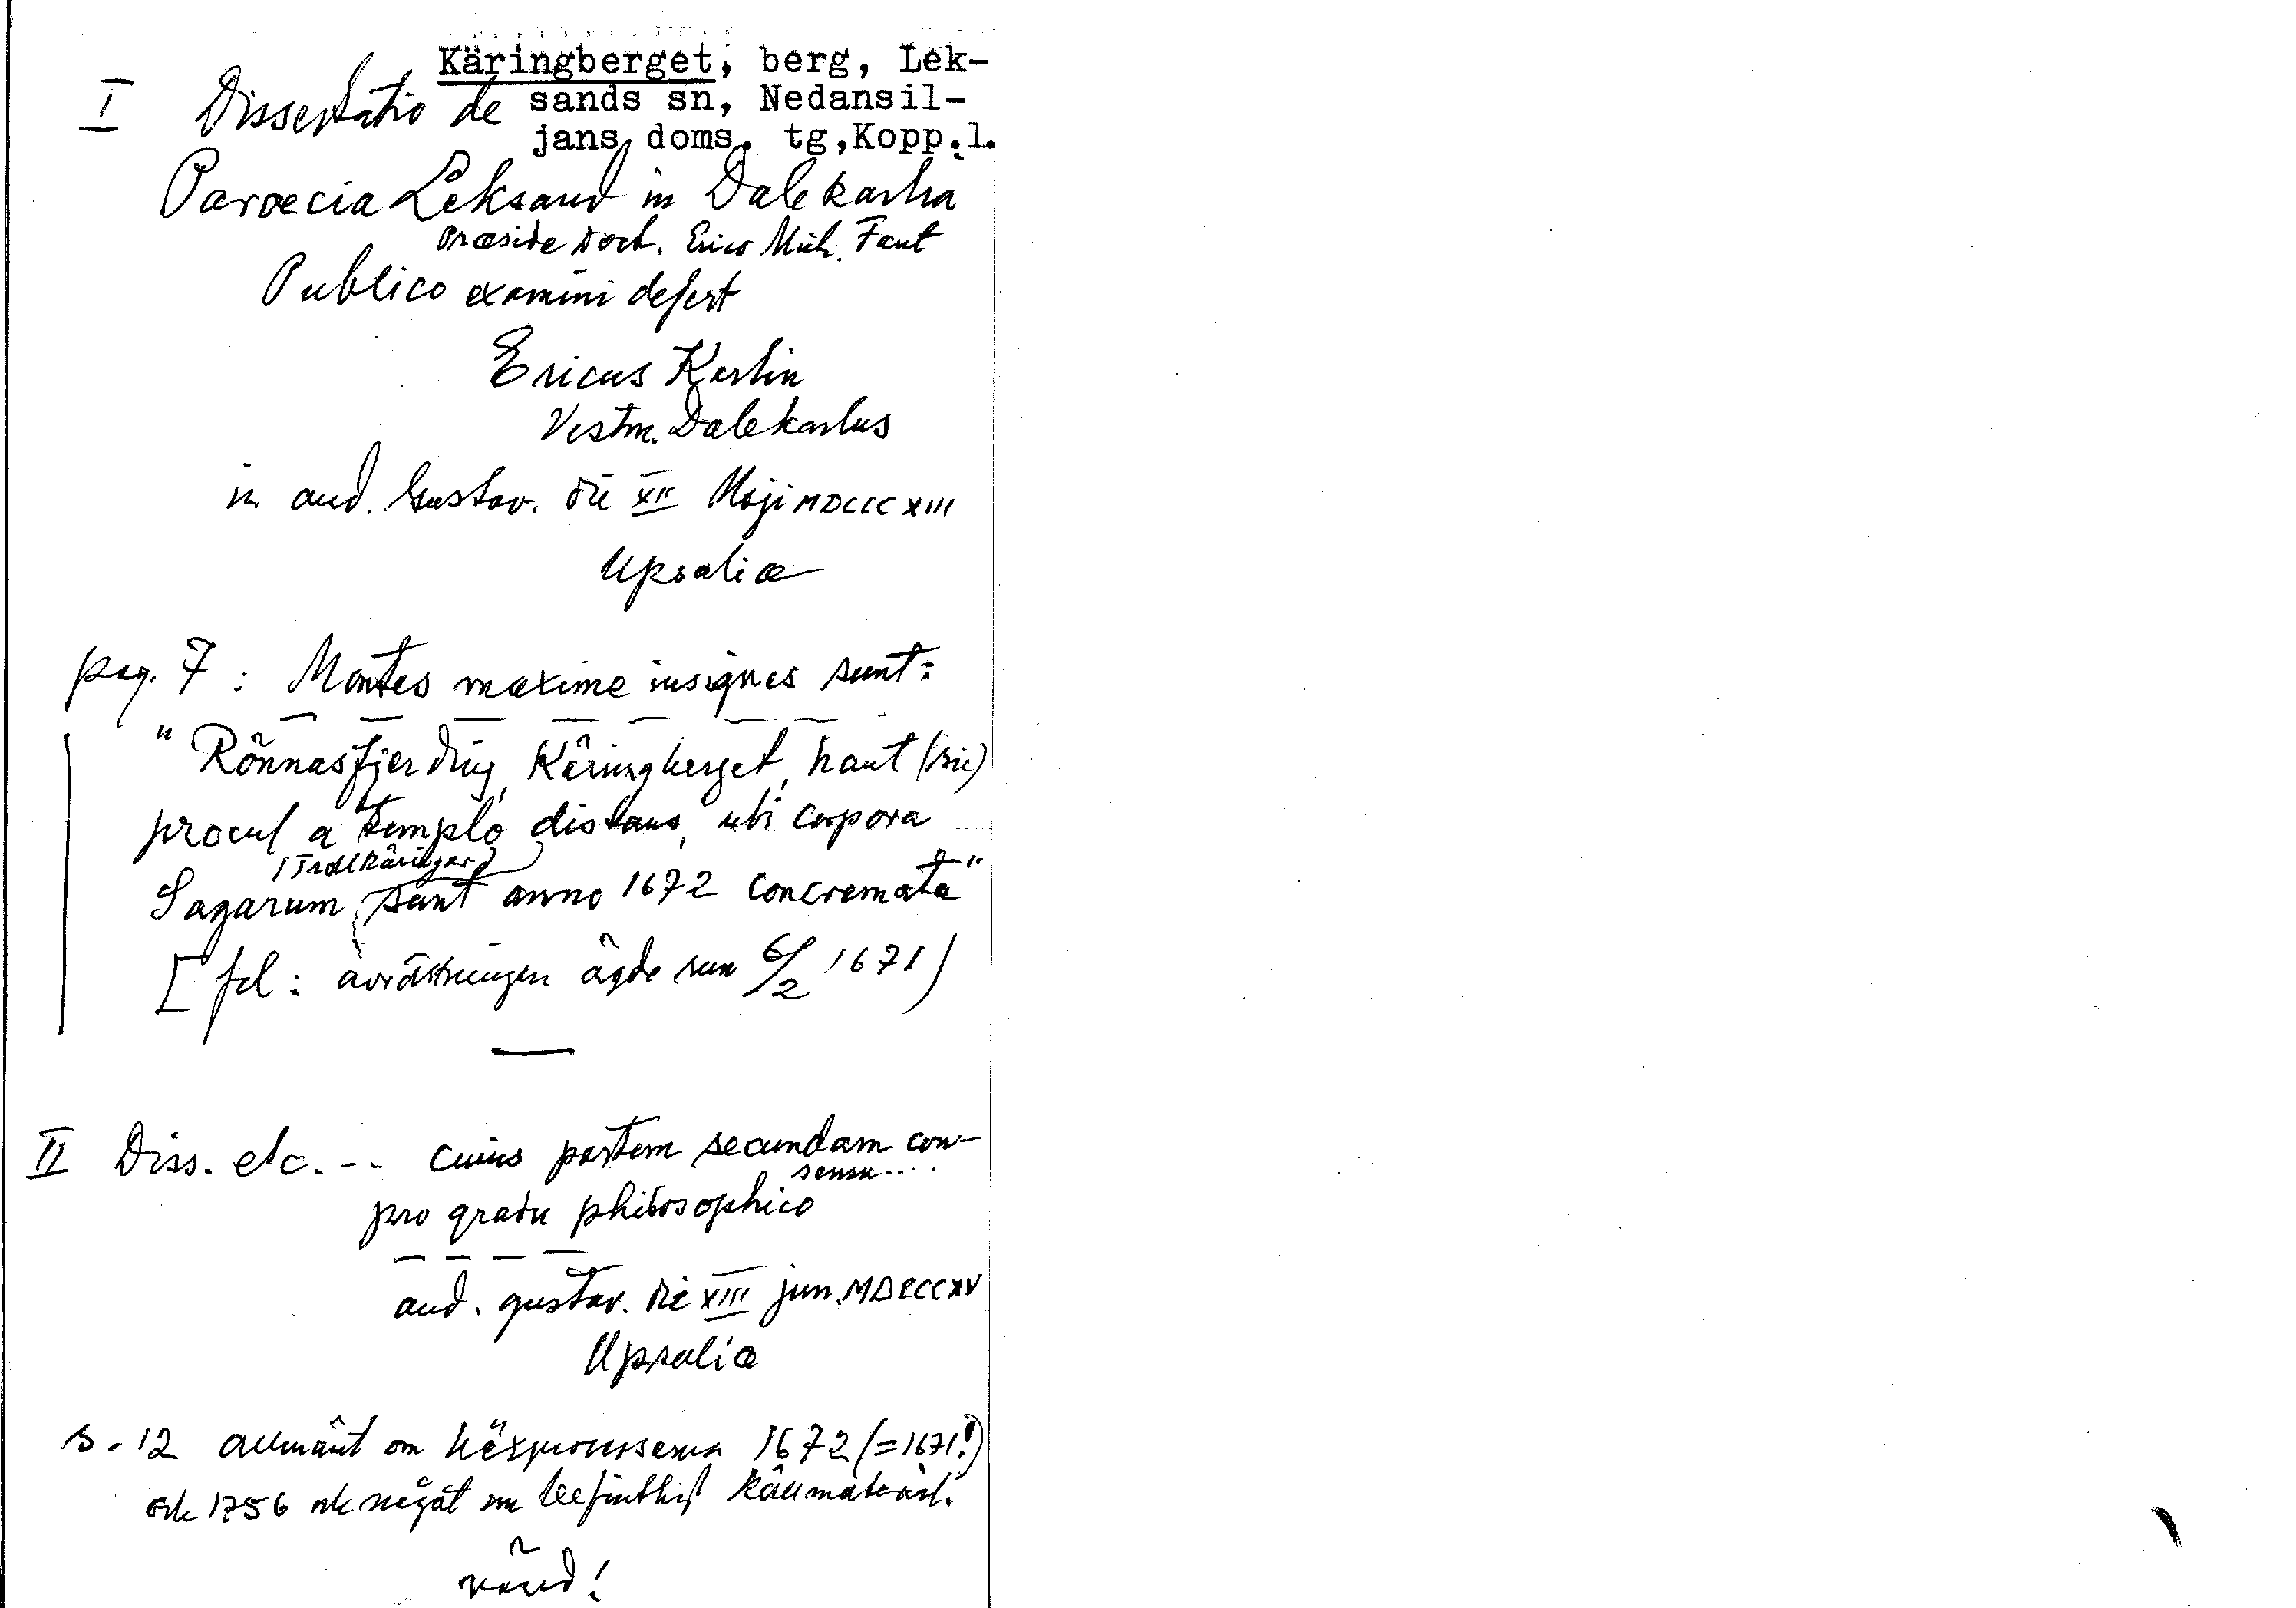 Käringberget, berg, Lek-
sands sn, Nedansil-
jans doms. tg, Kopp.l.
I Dissertatio de
Paroecia Leksand in Dalekarlia
Præside Doct. Erico Mich. Fant
Publico examini defert
Ericus Karlin
Vestm. Dalekarlus
in aud. Gustav. die XII Maji MDCCCXIII
Upsaliæ
pag. 7 : Montes maxime insignes sunt:
— — — — — — —
" Rönnäsfjerding, Käringberget, haut (sic)
procul a templo distans, ubi corpora
(Trollkäringar)
Sagarum sunt anno 1672 concremata"
[fel: avrättningen ägde rum 6/2 1671)
—
II Diss. etc. -- cuius partem secundam con-
sensu....
pro gradu philosophico
— — — —
aud. gustav. die XIII jun. MDCCCXV
Upsaliæ
s. 12 allmänt om häxprocesserna 1672 (=1671!)
och 1756 och något om befintligt källmaterial.
vänd!